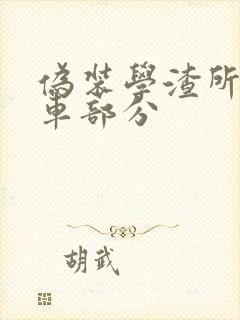 偽裝學渣所
車部分
胡武